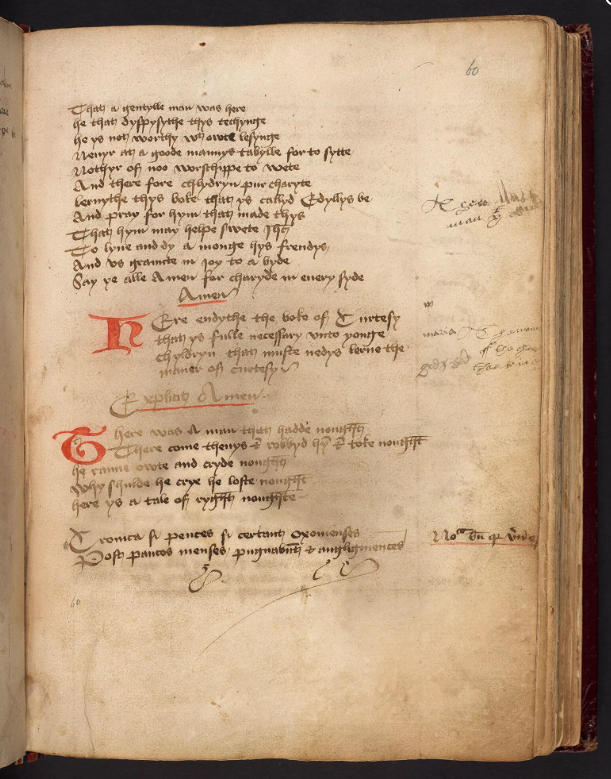 60
That a gentylle man was here
he that dyspysythe thys techynge
he ys not worthy wt owte lesynge
Nevyr at a goode mannys tabylle for to sytte
Nothyr of noo worschippe to wete
And there fore chyldryn pur charyte
lernythe thys boke that ys callyd Edyllys be
And pray for hym that made thys
That hym may helpe swete Ihs
To lyve and dy a monge hys frendys
And us graunte in joy to a byde
Say ye alle Amen for charyde in every syde
Amen
Here endythe the boke of Curtesy
that ys fulle necessary unto yonge
chyldryn that muste nedys lerne the
maner of curtesy
Explicit Amen
There was a man that hadde nought
There come thevys & robbyd hym & toke nought
he ranne owte and cryde nought
Why schulde he crye he loste nought
here ys a tale of ryght noughte
Cronica si pences si certant oxonienses
Post paucos menses pugnabunt
60